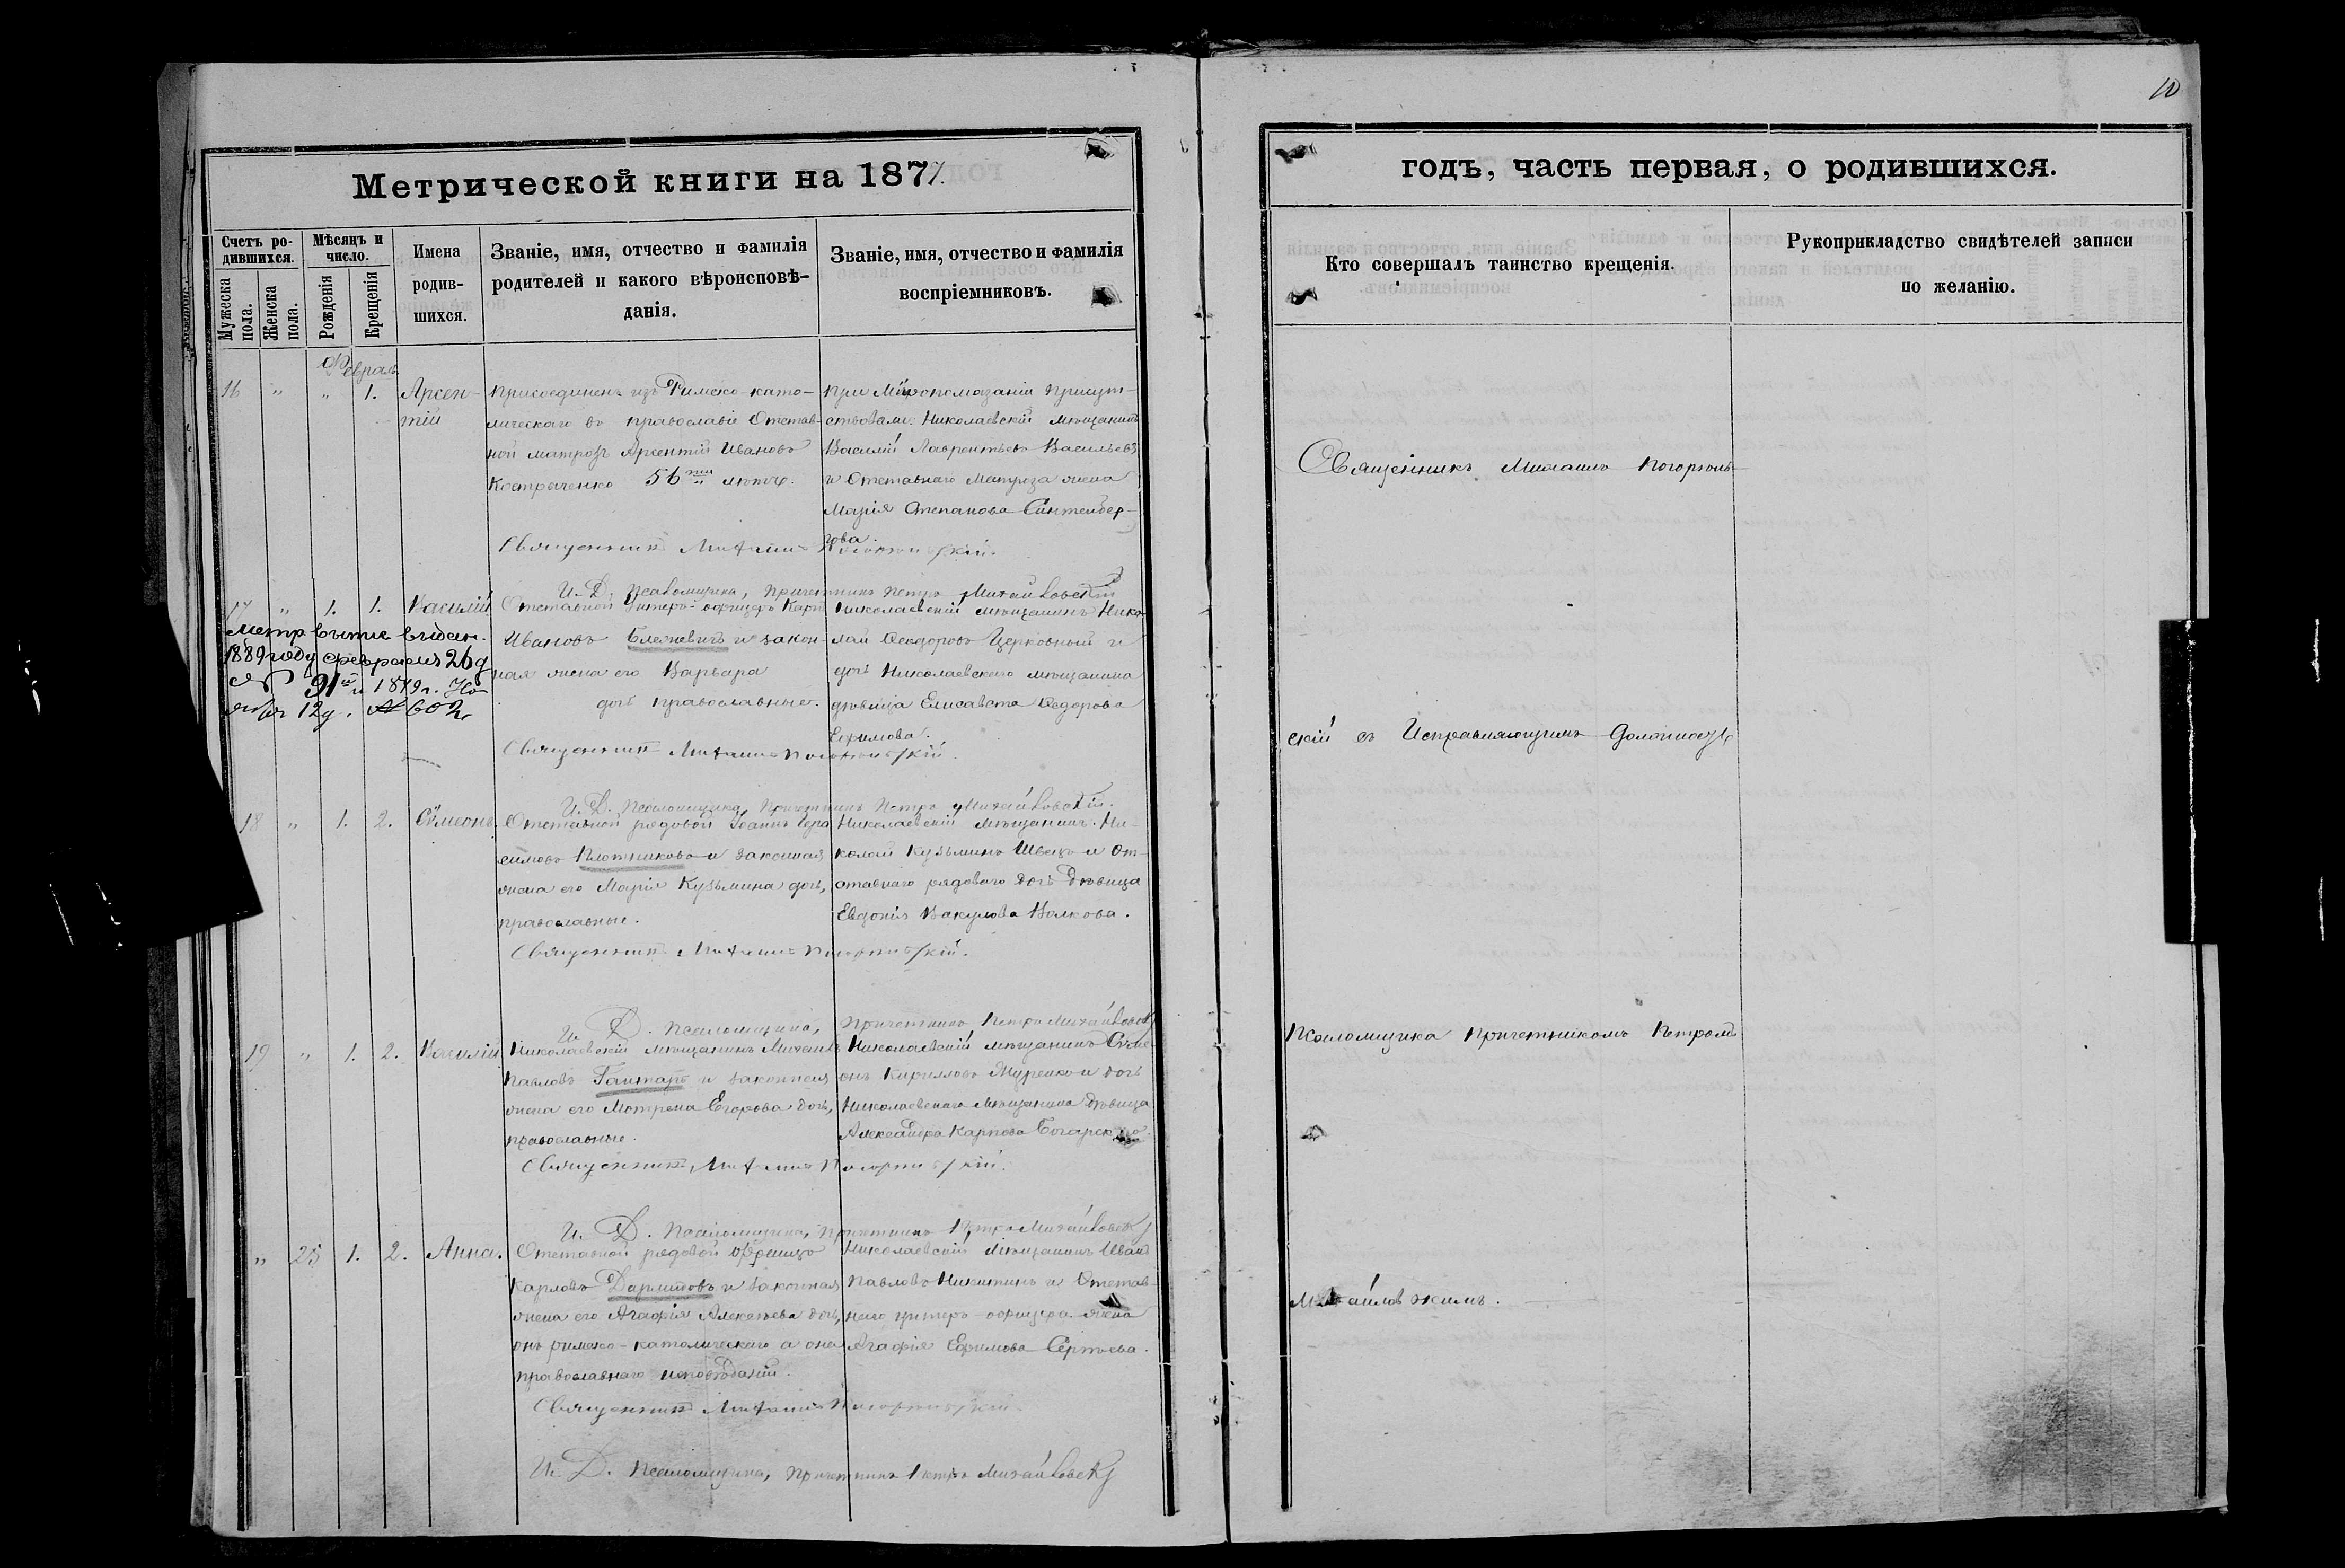 10
Метрической книги на 1877.
годъ, часть первая, о родившихся.
Счетъ ро-
дившихся.
Мужеска пола.
Женска пола.
Мѣсяцъ и
число.
Рожденія
Крещенія
Имена
родив-
шихся.
Званіе, имя, отчество и фамилія
родителей и какого вѣроисповѣ-
данія.
Званіе, имя, отчество и фамилія
воспріемниковъ.
Кто совершалъ таинство крещенія.
Рукоприкладство свидѣтелей записи
по желанію.
Февраль
16 " " 1. Арсен-
тій
Присоединенъ изъ Римско-като-
лическаго въ православіе Отстав-
ной матрозъ Арсентій Ивановъ
56 ти лѣтъ.
При Мѵропомазаніи присут-
ствовали: Николаевскій мѣщанинъ
Василій Лаврентьевъ Васильевъ
и Отставнаго Матроза жена
Марія Степанова
гова.
Священникъ Михаилъ
И. Д. Псаломщика, Причетникъ Петръ Михайловскій
17 " 1. 1. Василій
Метр вытис видан.
1889 году февраля 26 д
№ 91 и 1879 г. Но
ября 12 д. № 602
Отставной Унтеръ-офицеръ Карлъ
Ивановъ и закон-
ная жена его Варвара
дочь православные.
Николаевскій мѣщанинъ Нико-
лай Ѳеодоровъ Церковный и
дочь Николаевскаго мѣщанина
дѣвица Елисавета Ѳедорова
Ефимова.
Священникъ Михаилъ
И. Д. Псаломщика, Причетникъ Петръ Михайловскій.
18 " 1. 2. Сѵмеонъ.
Отставной рядовой Іоаннъ Гера
симовъ Плотниковъ и законная
жена его Марія Кузьмина дочь,
православные.
Николаевскій Мѣщанинъ Ни-
колай Кузьминъ Швецъ и От-
ставнаго рядоваго дочь дѣвица
Евдокія Вакулова Волкова.
Священникъ Михаилъ
И. Д. Псаломщика, Причетникъ Петръ Михайловскій
19 " 1. 2. Василій
Николаевскій мѣщанинъ Михаилъ
Павловъ Гайтаръ и законная
жена его Мотрона Егорова дочь,
православные.
Николаевскій мѣщанинъ Сѵме
онъ Кирилловъ Муренко и дочь
Николаевскаго Мѣщанина дѣвица
Александра Карпова
Священникъ Михаилъ
И. Д. Псаломщика, Причетникъ Петръ Михайловскій
" 25 1. 2. Анна.
Отставной рядовой Францъ
Карловъ и законная
жена его Агафія Алексѣева дочь,
онъ римско-католическаго а она
православнаго исповѣданій.
Николаевскій Мѣщанинъ Иванъ
Павловъ Никитинъ и Отстав-
наго унтеръ-офицера жена
Агафія Ефимова
Священникъ Михаилъ
И. Д. Псаломщика, Причетникъ Петръ Михайловскій
Священникъ Михаилъ Погорѣль-
скій съ Исправляющимъ Должность
Псаломщика Причетникомъ Петромъ
Михайловскимъ.